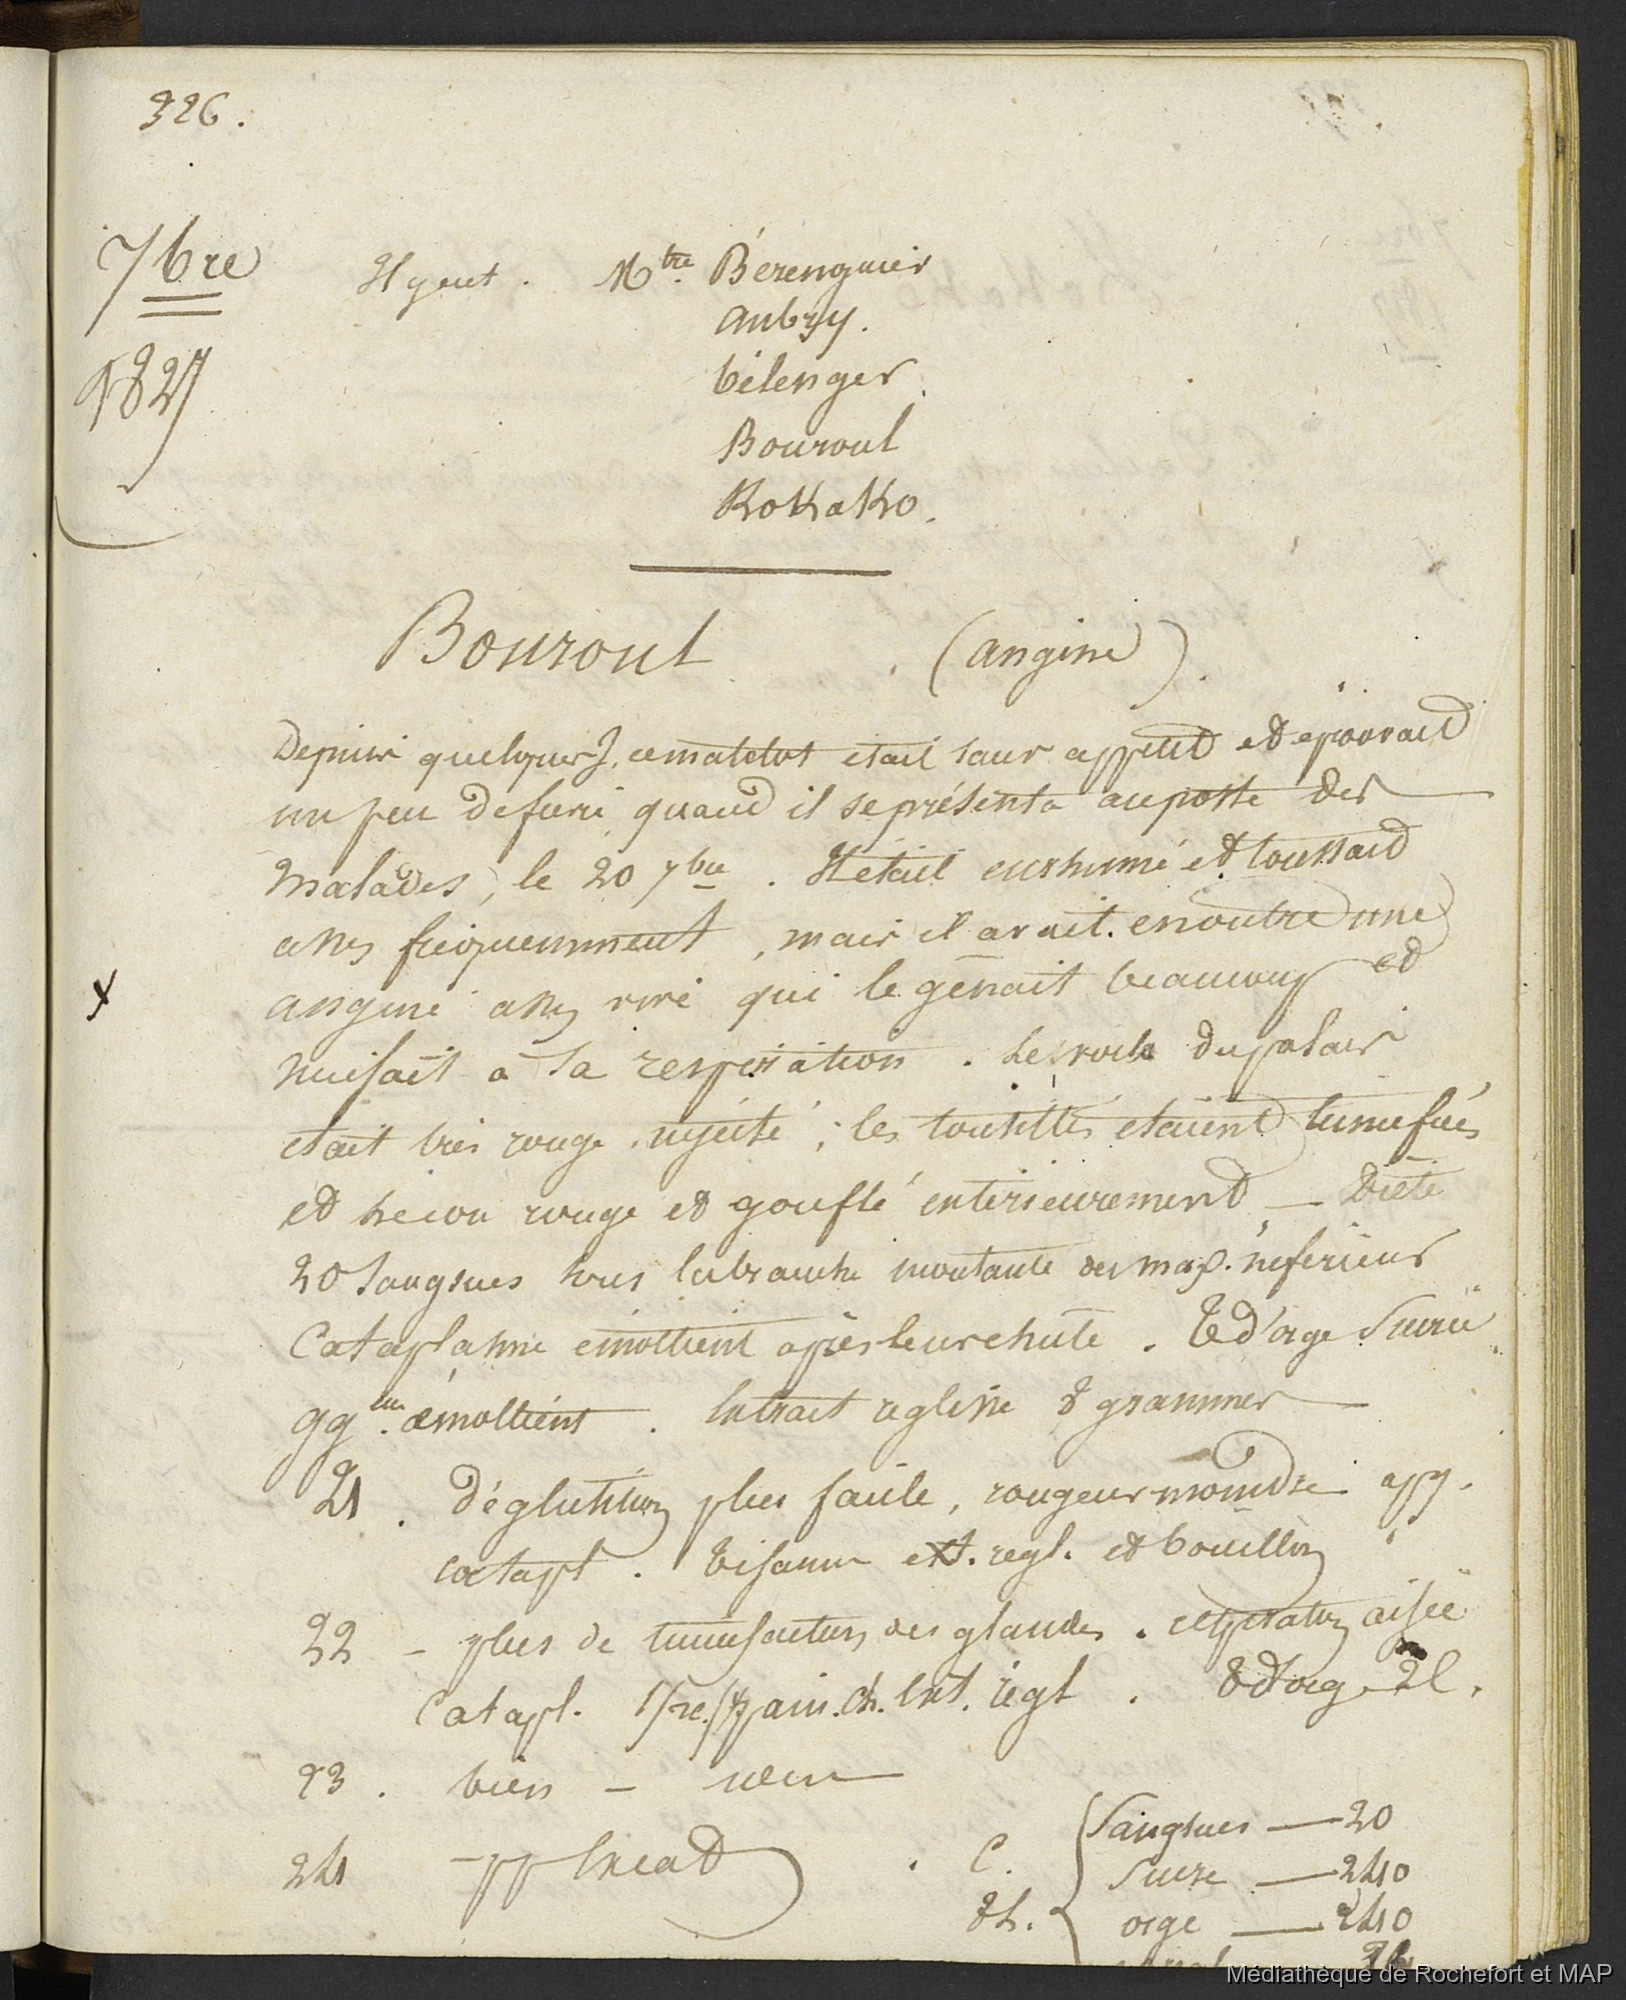 326.
7bre
1827
Il y eut. Mtre Bérenguier
Aubry.
bélenger.
Bouroul
Kokako.
Bouroul (angine).
Depuis quelques j. ce matelot etait sans appetit et eprouvait
un peu de fievre quand il se présenta au poste des
malades, le 20 7bre. Il etait enrhumé et toussait
assez frequemment, mais il avait en outre une
angine assez vive qui le gênait beaucoup et
nuisait à la respiration. Le voile du palais
etait très rouge, injecté; les tonsilles etaient tumefiées
et le cou rouge et gonflé exterieurement — Diète
20 Sangsues sous la branche montante des max. inferieurs
Cataplasme émollient après leur chute. T d'orge Sucrée
gg eme émollient. Extrait reglisse 8 grammes
21. Déglutition plus facile, rougeur moindre app.
catapl. tisanne ext. regl. et bouillon
22 — plus de tumefaction des glandes. respiration aisée
Catapl. pain. Ext. regl. T d'org. 2 l.
23. bien — idem
24 exeat
C. Sangsues — 20
Sucre — 240
orge — 240
Médiathèque de Rochefort et MAP